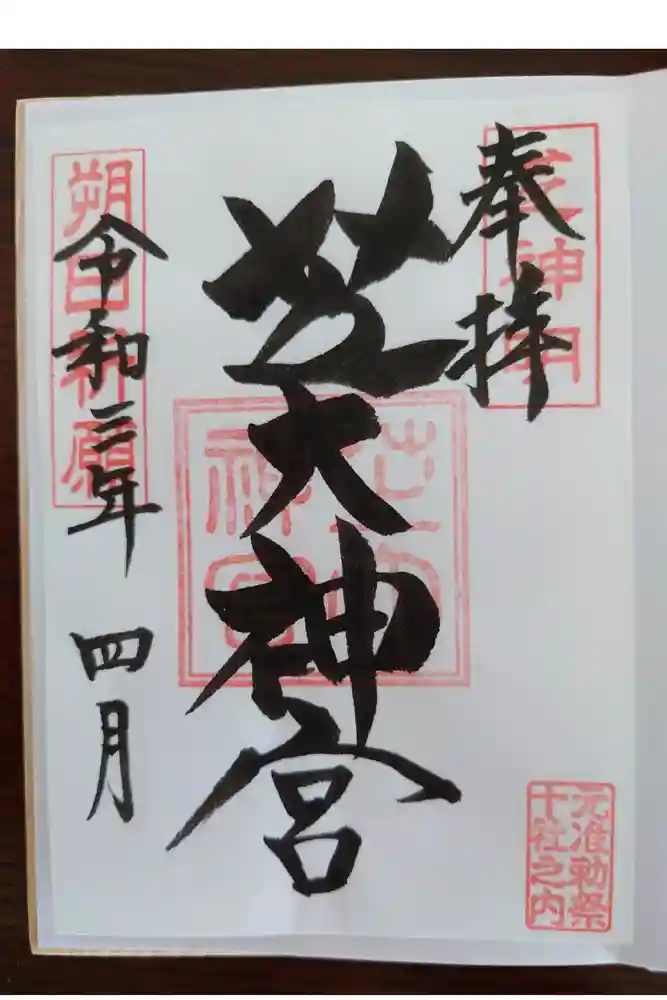 奉拝
芝神明
芝大神宮
元准勅祭
十社之内
朔日祈願
令和三年 四月